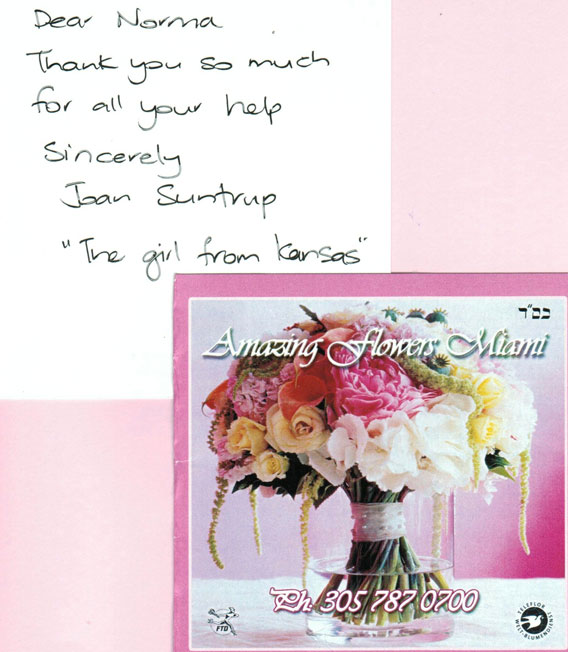 Dear Norma
Thank you so much
for all your help
Sincerely
Joan Suntrup
"The girl from Kansas"
בס"ד
Amazing Flowers Miami
Ph: 305 787 0700
FTD
TELEFLOR WELT-BLUMENDIENST